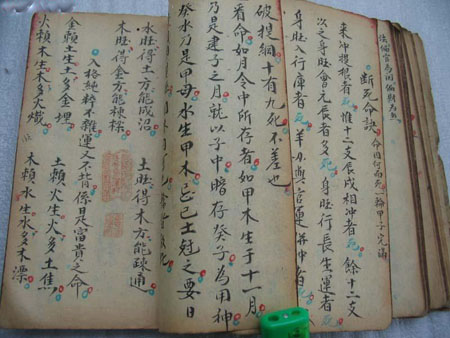 断死命訣
来冲提想者死 惟十二支辰戌相冲者死 餘十二支
以之身旺會元辰者多死 身旺行長生運者死
身旺入行庫者死 羊刃與官運并冲者死
破提綱十有九死不差也
看命如月令中所存者如甲木生于十一月
乃是建子之月就以子中暗存癸子為用神
癸水乃是甲母水生甲木忌己土尅之要日
水旺得土方能成沼 土旺得木方能疎通
木旺得金方能棟樑
入格純粹不雜運又不背係是富貴之命
金賴土生土多金埋 土賴火生火多土焦
火賴木生木多火熾 木賴水生水多木漂